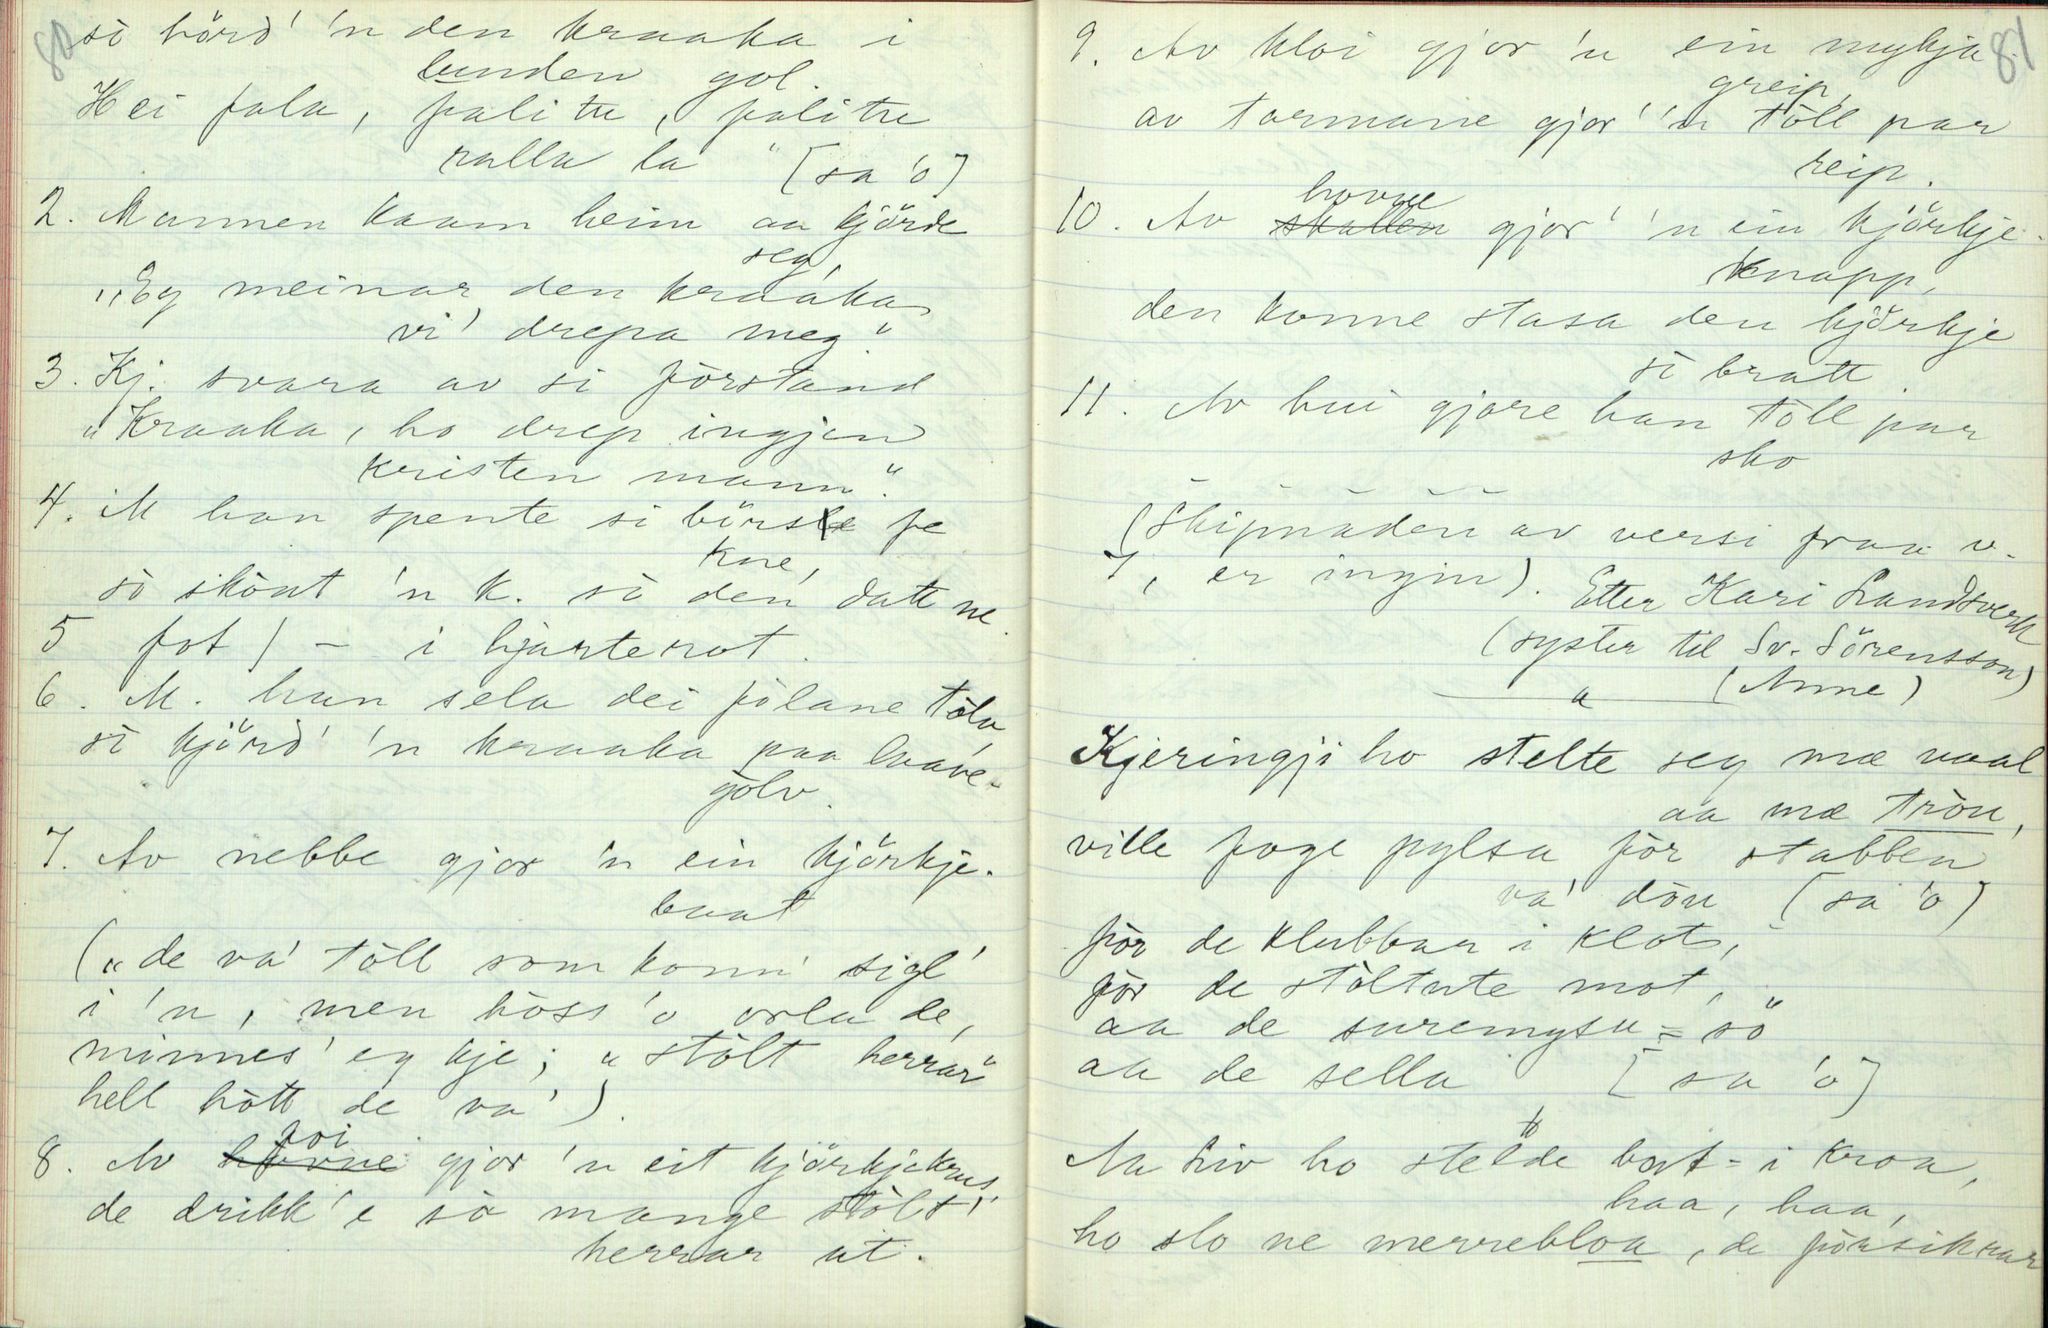 80
sò hörd' 'n den kraaka i
lunden gol.
Hei fala, falitu, falitu
ralla la" [sa 'o]
2. Mannen kaam heim aa kjörde
seg,
"Eg meinar, den kraaka
vi' drepa meg."
3. Kj. svara av si förstand
"Kraaka, ho drep ingjen
kristen mann."
4. M han spente si börse fe
kne,
sò skönt 'n k. sò den datt ne.
5 fot) – i hjarterot.
6. M. han sela dei fòlane tòlv,
sò kjörd' 'n kraaka paa laave-
gòlv.
7. Av nebbe gjor 'n ein kjörkje-
baat
("de va' tòll som konn' sigl'
i 'n, men hòss 'o orla de,
minnes' eg kje; "stòlt herrar"
hell hòtt de va').
8. Av hovne goi gjor 'n eit kjörkjekrus
de drikk 'e sò mange stòlt'
herrar ut.
81
9. Av kloi gjor 'n ein mykja
greip,
av tarmane gjor' 'n tòll par
reip.
10. Av skallen hovue gjor' 'n ein kjörkje-
knapp,
den konne stasa den kjörkje
sò bratt.
11. Av hui gjore han tòll par
sko
– – – – –
(Skipnaden av versi fraa v.
7, er ingin). Etter Kari Landsverk
(syster til Sv. Sörensson)
(Anne)
Kjeringji ho stelte seg mæ vaal
aa mæ tròu,
ville foge pylsa fòr stabben
va' dòu [sa 'o]
fòr de klubbar i klot,
fòr de stòltute mot,
aa de suremysu = sò
aa de sella [sa 'o]
Aa Liv ho stelde t bort = i kroa,
haa, haa,
ho slo ne merrebloa, de fòrsikrar